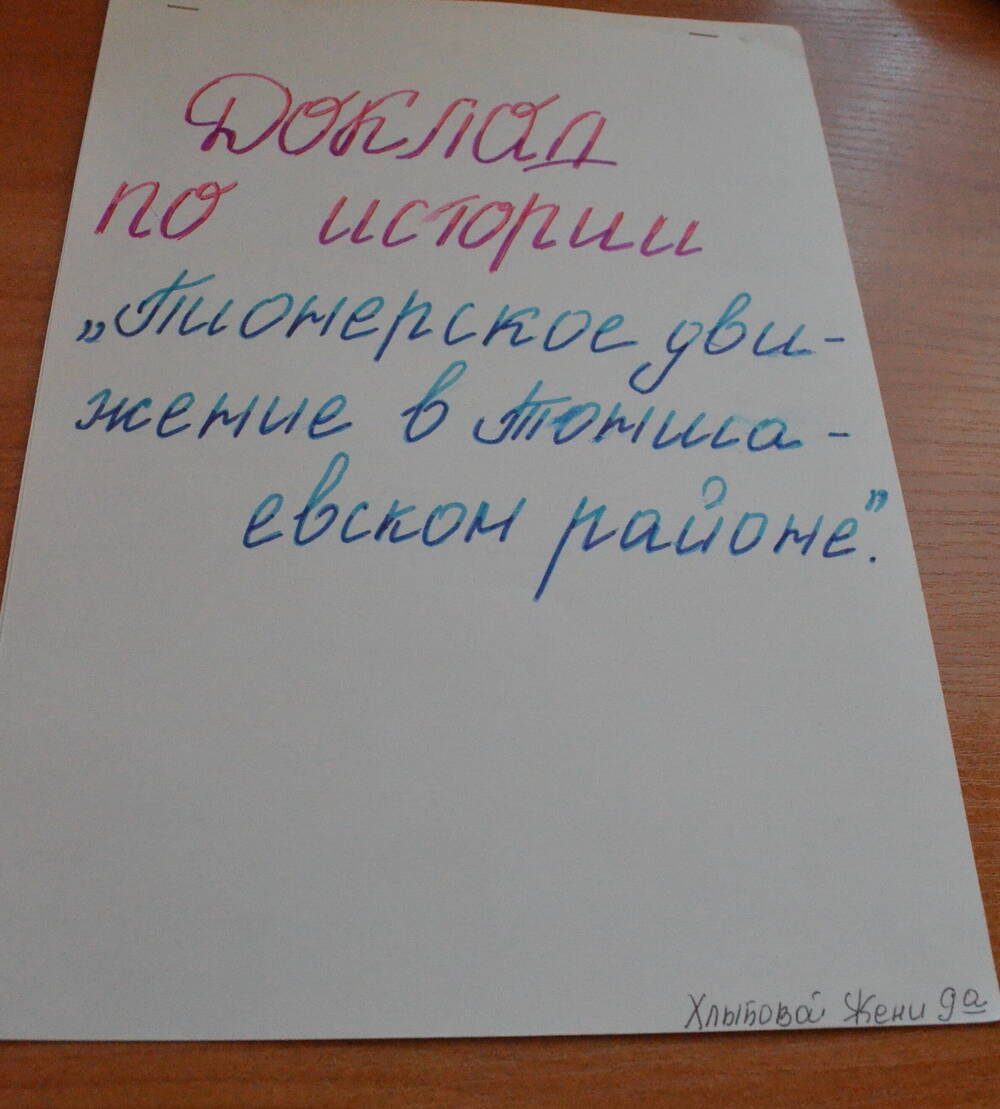 Доклад
по истории
„Пионерское дви-
жение в Тонша-
евском районе".
Хлыбовой Жени 9а